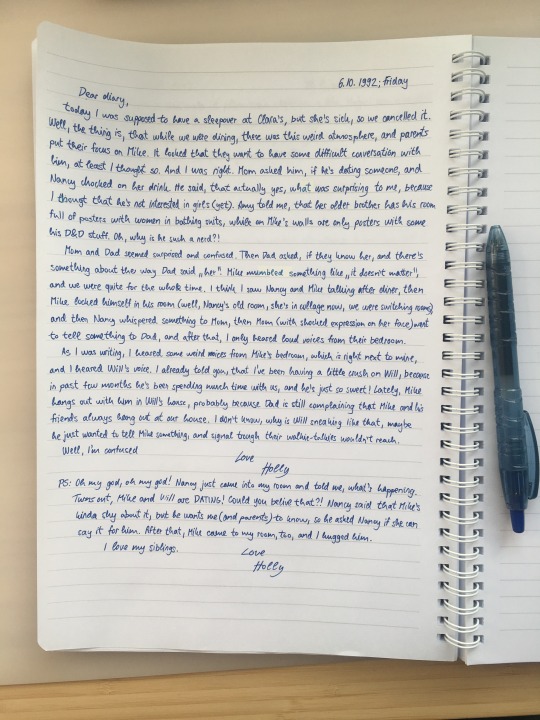 6.10. 1992; friday
Dear diary,
today I was supposed to have a sleepover at Clara's, but she's sick, so we cancelled it.
Well, the thing is, that while we were dining, there was this weird atmosphere, and parents
put their focus on Mike. It looked that they want to have some difficult conversation with
him, at least I thought so. And I was right. Mom asked him, if he's dating someone, and
Nancy chocked on her drink. He said, that actually yes, what was surprising to me, because
I thougt that he's not interested in girls (yet). Amy told me, that her older brother has his room
full of posters with women in bathing suits, while on Mike's walls are only posters with some
his D&D stuff. Oh, why is he such a nerd?!
Mom and Dad seemed surprised and confused. Then Dad asked, if they know her, and there's
something about the way Dad said „her". Mike mumbled something like „it doesn't matter",
and we were quite for the whole time. I think I saw Nancy and Mike talking after diner, then
Mike locked himself in his room (well, Nancy's old room, she's in collage now, we were switching rooms)
and then Nancy whispered something to Mom, then Mom (with shocked expression on her face) went
to tell something to Dad, and after that, I only heared loud voices from their bedroom.
As I was writing, I heared some weird voices from Mike's bedroom, which is right next to mine,
and I heared Will's voice. I already told you, that I've been having a little crush on Will, because
in past few months he's been spending much time with us, and he's just so sweet! Lately, Mike
hangs out with him in Will's house, probably because Dad is still complaining that Mike and his
friends always hang out at our house. I don't know, why is Will sneaking like that, maybe
he just wanted to tell Mike something, and signal trough their walkie-talkies wouldn't reach.
Well, I'm confused
Love
Holly
PS: Oh my god, oh my god! Nancy just came into my room and told me, what's happening.
Turns out, Mike and Will are DATING! Could you belive that?! Nancy said that Mike's
kinda shy about it, but he wants me (and parents) to know, so he asked Nancy if she can
say it for him. After that, Mike came to my room, too, and I hugged him.
I love my siblings.
Love
Holly